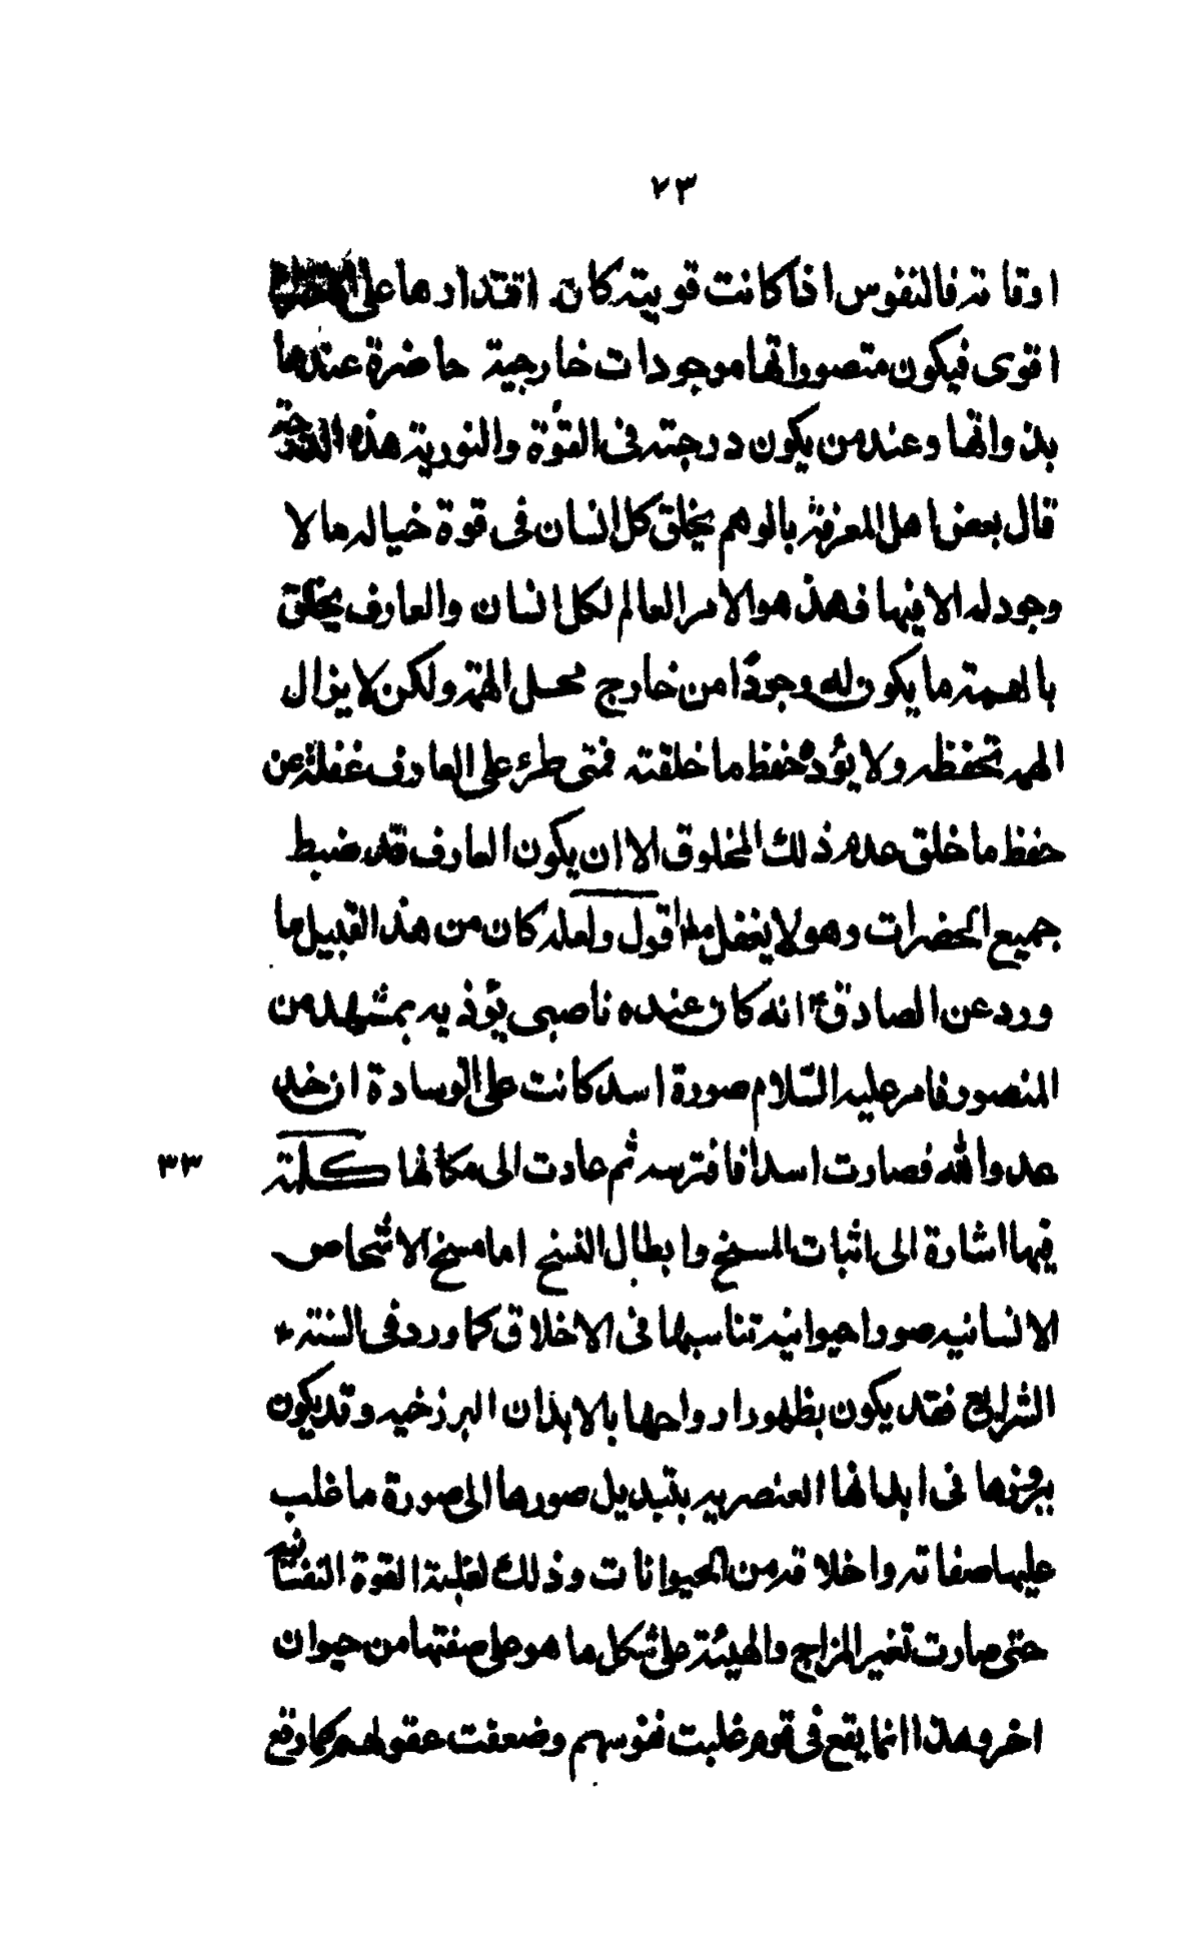 ٧٣
اوقاته فالنفوس اذا كانت قويته كان اقتدارها على
اقوى فيكون متصوراتها موجودات خارجية حاضرة عندها
بذواتها وعند من يكون درجته فى القوّة والنورية هذه الدرجة
قال بعض اهل المعرفة بالوهم يخلق كل انسان فى قوة خياله ما لا
وجود له الا فيها فهذ هو الامر العالم لكل انسان والعارف يخلق
بالهمته ما يكون له وجودًا من خارج محل الهمة ولكن لا يزال
الهمه تحفظه ولا يؤده حفظ ما خلقته فمتى طرء على العارف غفلة عن
حفظ ما خلق عدم ذلك المخلوق الا ان يكون العارف قد ضبط
جميع الحضرات وهو لا يغفل اقول ولعله كان من هذ القبيل ما
ورد عن الصادق ع انه كان عنده ناصبى يؤذيه بمشهد من
المنصور فامر عليه السّلام صورة اسد كانت على الوسادة ان خذ
عدو الله فصارت اسدا فافترسه ثم عادت الى مكانها كلمة
٣٣
فيها اشارة الى اثبات المسخ وابطال النسخ اما مسخ الاشخاص
الانسانيه صورا حيوانيه تناسبها فى الاخلاق كما ورد فى السنته
الشرايع فقد يكون بظهور ارواحها بالابدان البرزخيه وقد يكون
ببروزها فى ابدانها العنصريه بتبديل صورها الى صورة ما غلب
عليها صفاته واخلاقه من الحيوانات وذلك لغلبة القوة النفسانيه
حتى صارت تغير المزاج والهيئة على شكل ما هو على صفتها من حيوان
اخر وهذا انما يقع فى قوم غلبت نفوسهم وضعفت عقولهم كما وقع